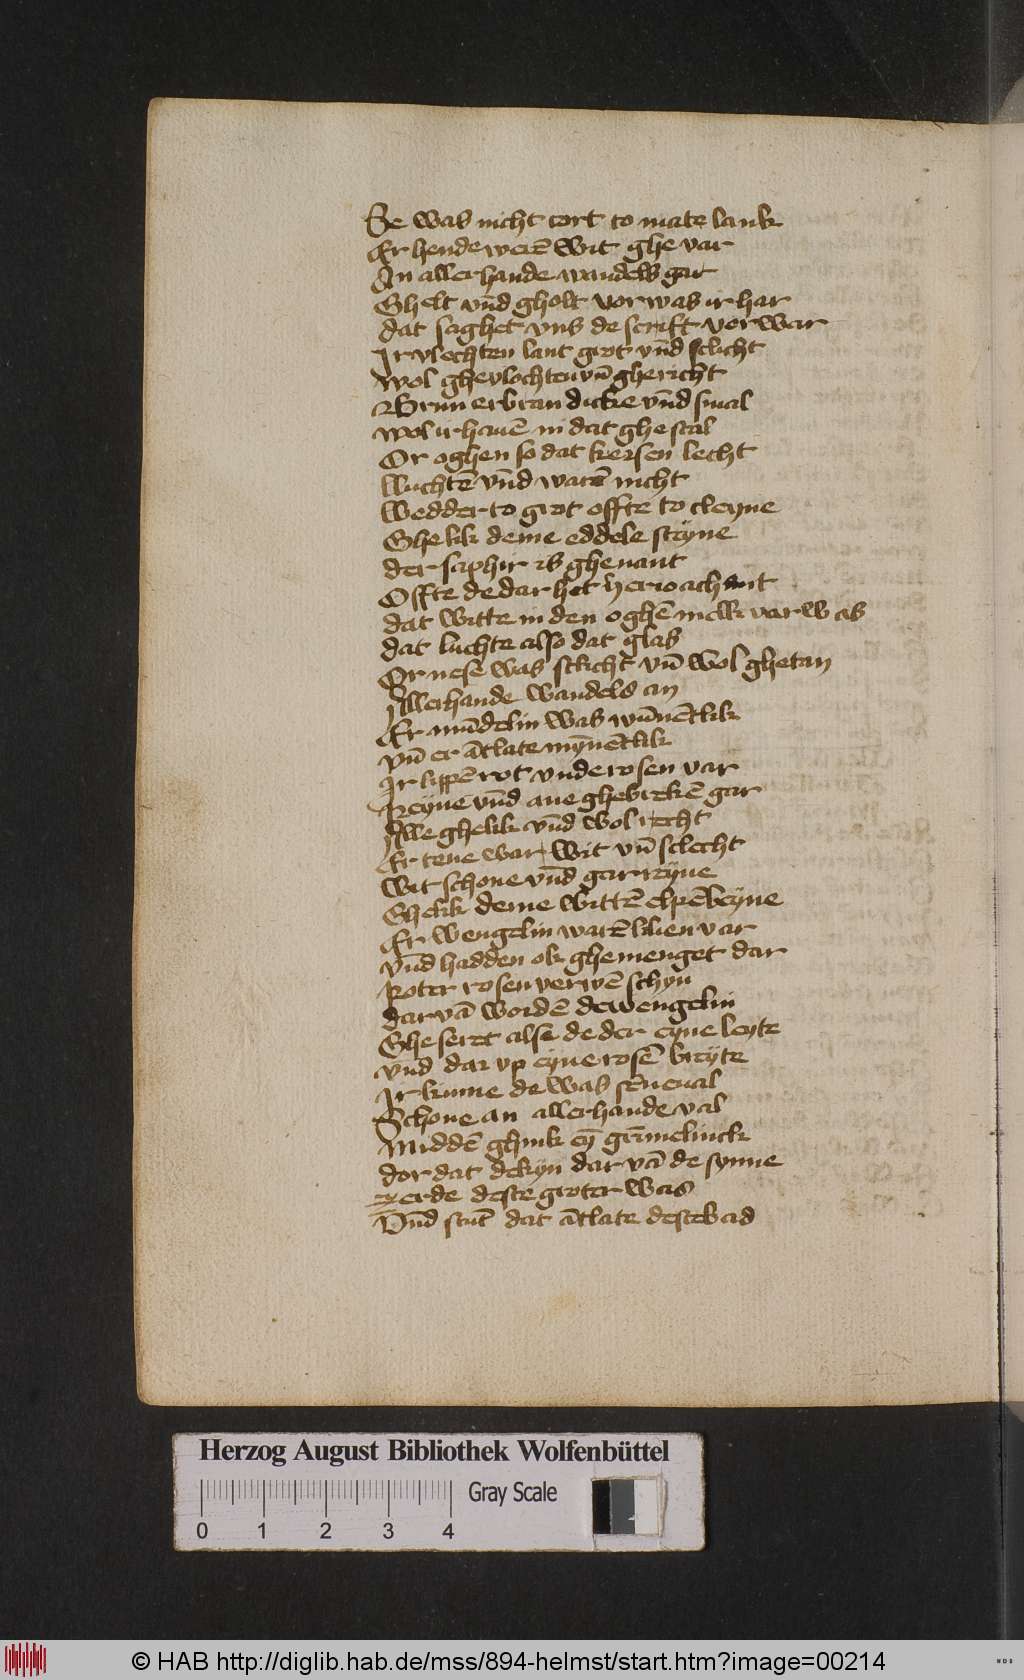 Se was nicht cort to mate lank
Er hende werē wit ghe var
An allerhande wandels gar
Ghelt vn̄d gholt vor was ir har
dat saghet vns de scrift vor war
Ir vlechten lant grot vn̄d slicht
wol ghevlochten vn̄ ghericht
Brun er bran dicke vn̄d smal
wol ir hauē in dat ghe stal
Or oghen so dat kersen lecht
luchtē vn̄d warē nicht
wedder to grot offte to cleyne
Ghe lik deme eddele steyne
der saphir is ghenant
Offte de dar het
dat witte in den oghē melk var was
dat luchte also dat glas
Or nese was slicht vn̄ wol ghetan
Allerhande wandels an
Er mūdelin was wūnētlik
vn̄ er ātlate mȳnētlik
Ir lippē rot vnde rosen var
Reyne vn̄d ane ghebrekē gar
Alle ghelik vn̄d wol recht
Er tene war wit vn̄ sclecht
wit schone vn̄d gar reyne
Ghelik deme wittē elpēbeyne
Er wengelin warē lilien var
vn̄d hadden ok ghemenget dar
Roter rosen verwē schyn
dar vā wordē de wengelin
Ghe seret alse de der eyne leyte
vn̄d dar vp eyne rosē breyte
Ir kinne de was sīneual
Schone an allerhande val
Middē ghink eȳ grīmelinck
dor dat dekyn dar vā de synne
erde deste groter was
Vn̄d stūt dat ātlate deste bad
Herzog August Bibliothek Wolfenbüttel
Gray Scale
0 1 2 3 4
© HAB http://diglib.hab.de/mss/894-helmst/start.htm?image=00214